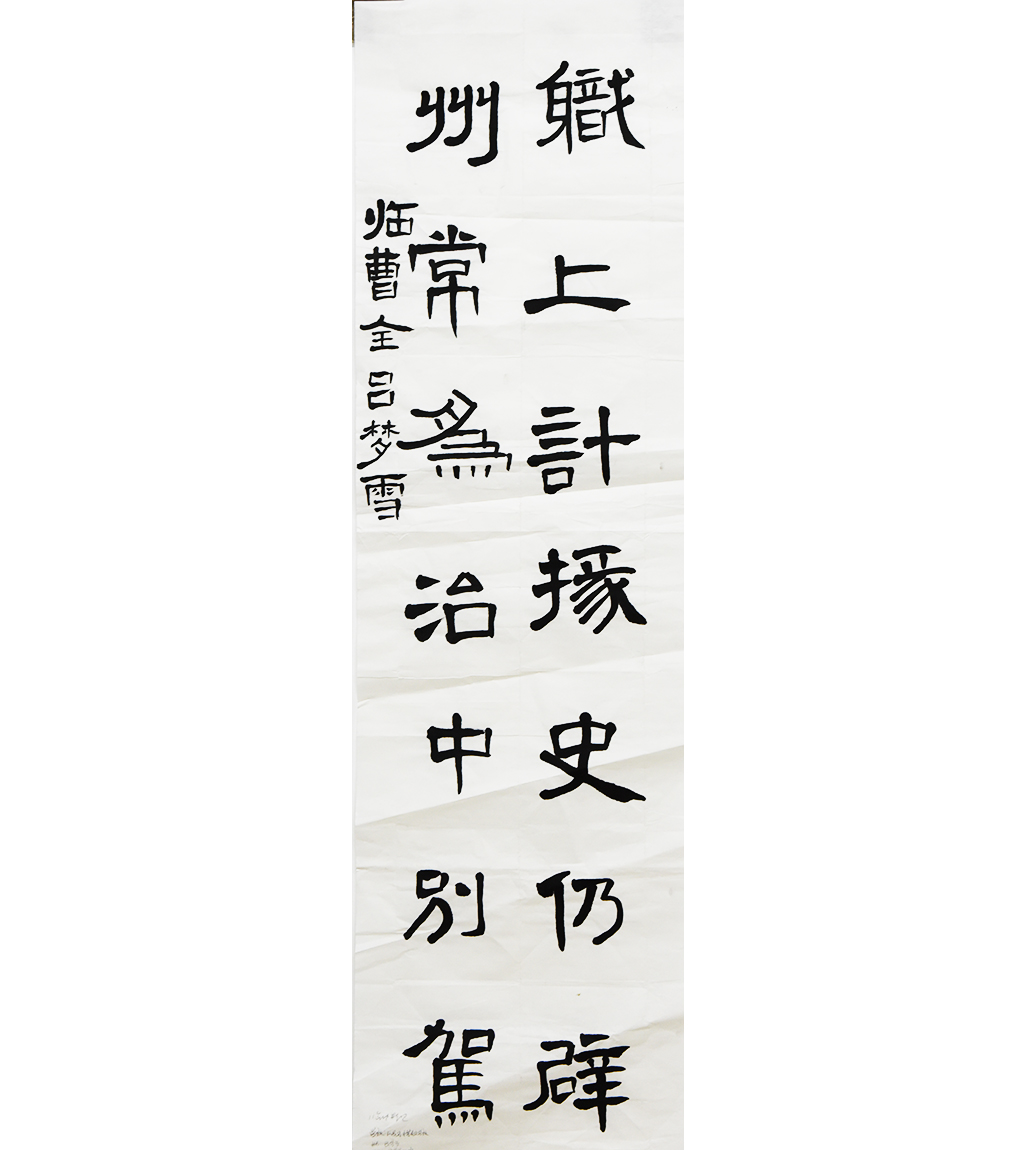 職上計掾史仍辟
州常為治中別駕
临曹全吕梦雪